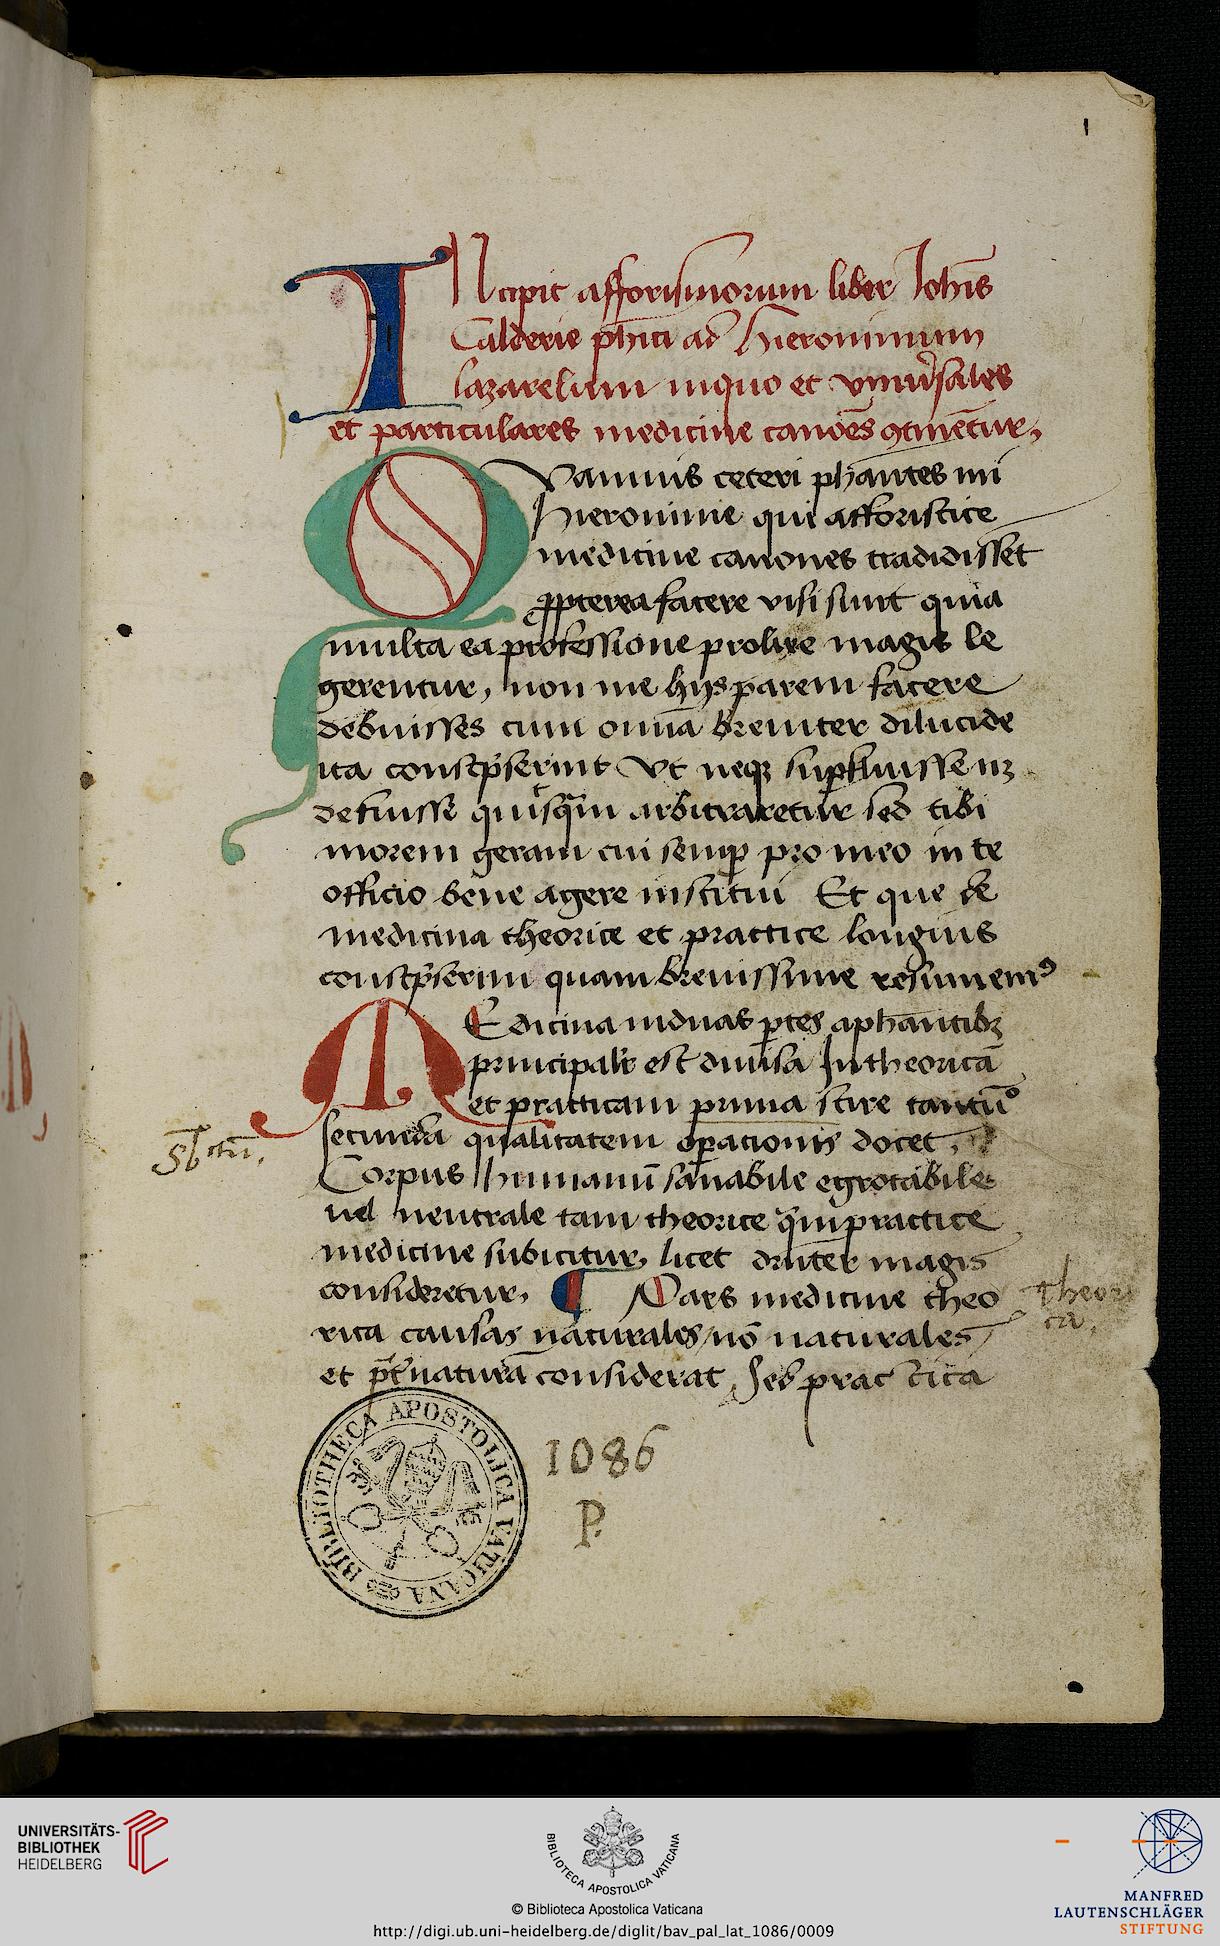 1
INcipit afforismorum liber Johīs
Calderie phīci ad Hieronimum
lazarelium inquo et vniu̓sales
et particulares medicine canoēs ꝯtinēt̄ur,
QVamuis ceteri phāntes mi
Hieronime qui afforistice
medicine canones tradidisset
ꝓpterea facere visi sunt quia
multa ea professione prolixe magis le
gerentur, non me hijs parem facere
debuisses cum omnīa breuiter dilucide
ita conscp̄serint Vt neqꝫ suꝑfluisse ꝫ
defuisse quisq̄m arbitraretur sed tibi
morem geram cui semꝑ pro meo in te
officio bene agere institui Et que de
medicina theorice et practice longius
conscp̄serim quam breuissime resumemꝰ
MEdicina induas ꝑtes aphāntibꝫ
principalr̄ est diuīsa In theoricā
et practicam prima scire tantū°
secunda qualitatem oꝑationis docet,
Sbctū,
Corpus humanū sanabile egrotabile
uel neutrale tam theorice q̄m practice
medicine subicitur, licet magis
consideretur, ¶ Pars medicine theo
theori
ca,
rica causas naturales/nō naturales/
et naturā considerat, Sed practica
BIBLIOTHECA APOSTOLICA VATICANA
1086
P.
UNIVERSITÄTS-
BIBLIOTHEK
HEIDELBERG
BIBLIOTECA APOSTOLICA VATICANA
© Biblioteca Apostolica Vaticana
http://digi.ub.uni-heidelberg.de/diglit/bav_pal_lat_1086/0009
MANFRED
LAUTENSCHLÄGER
STIFTUNG